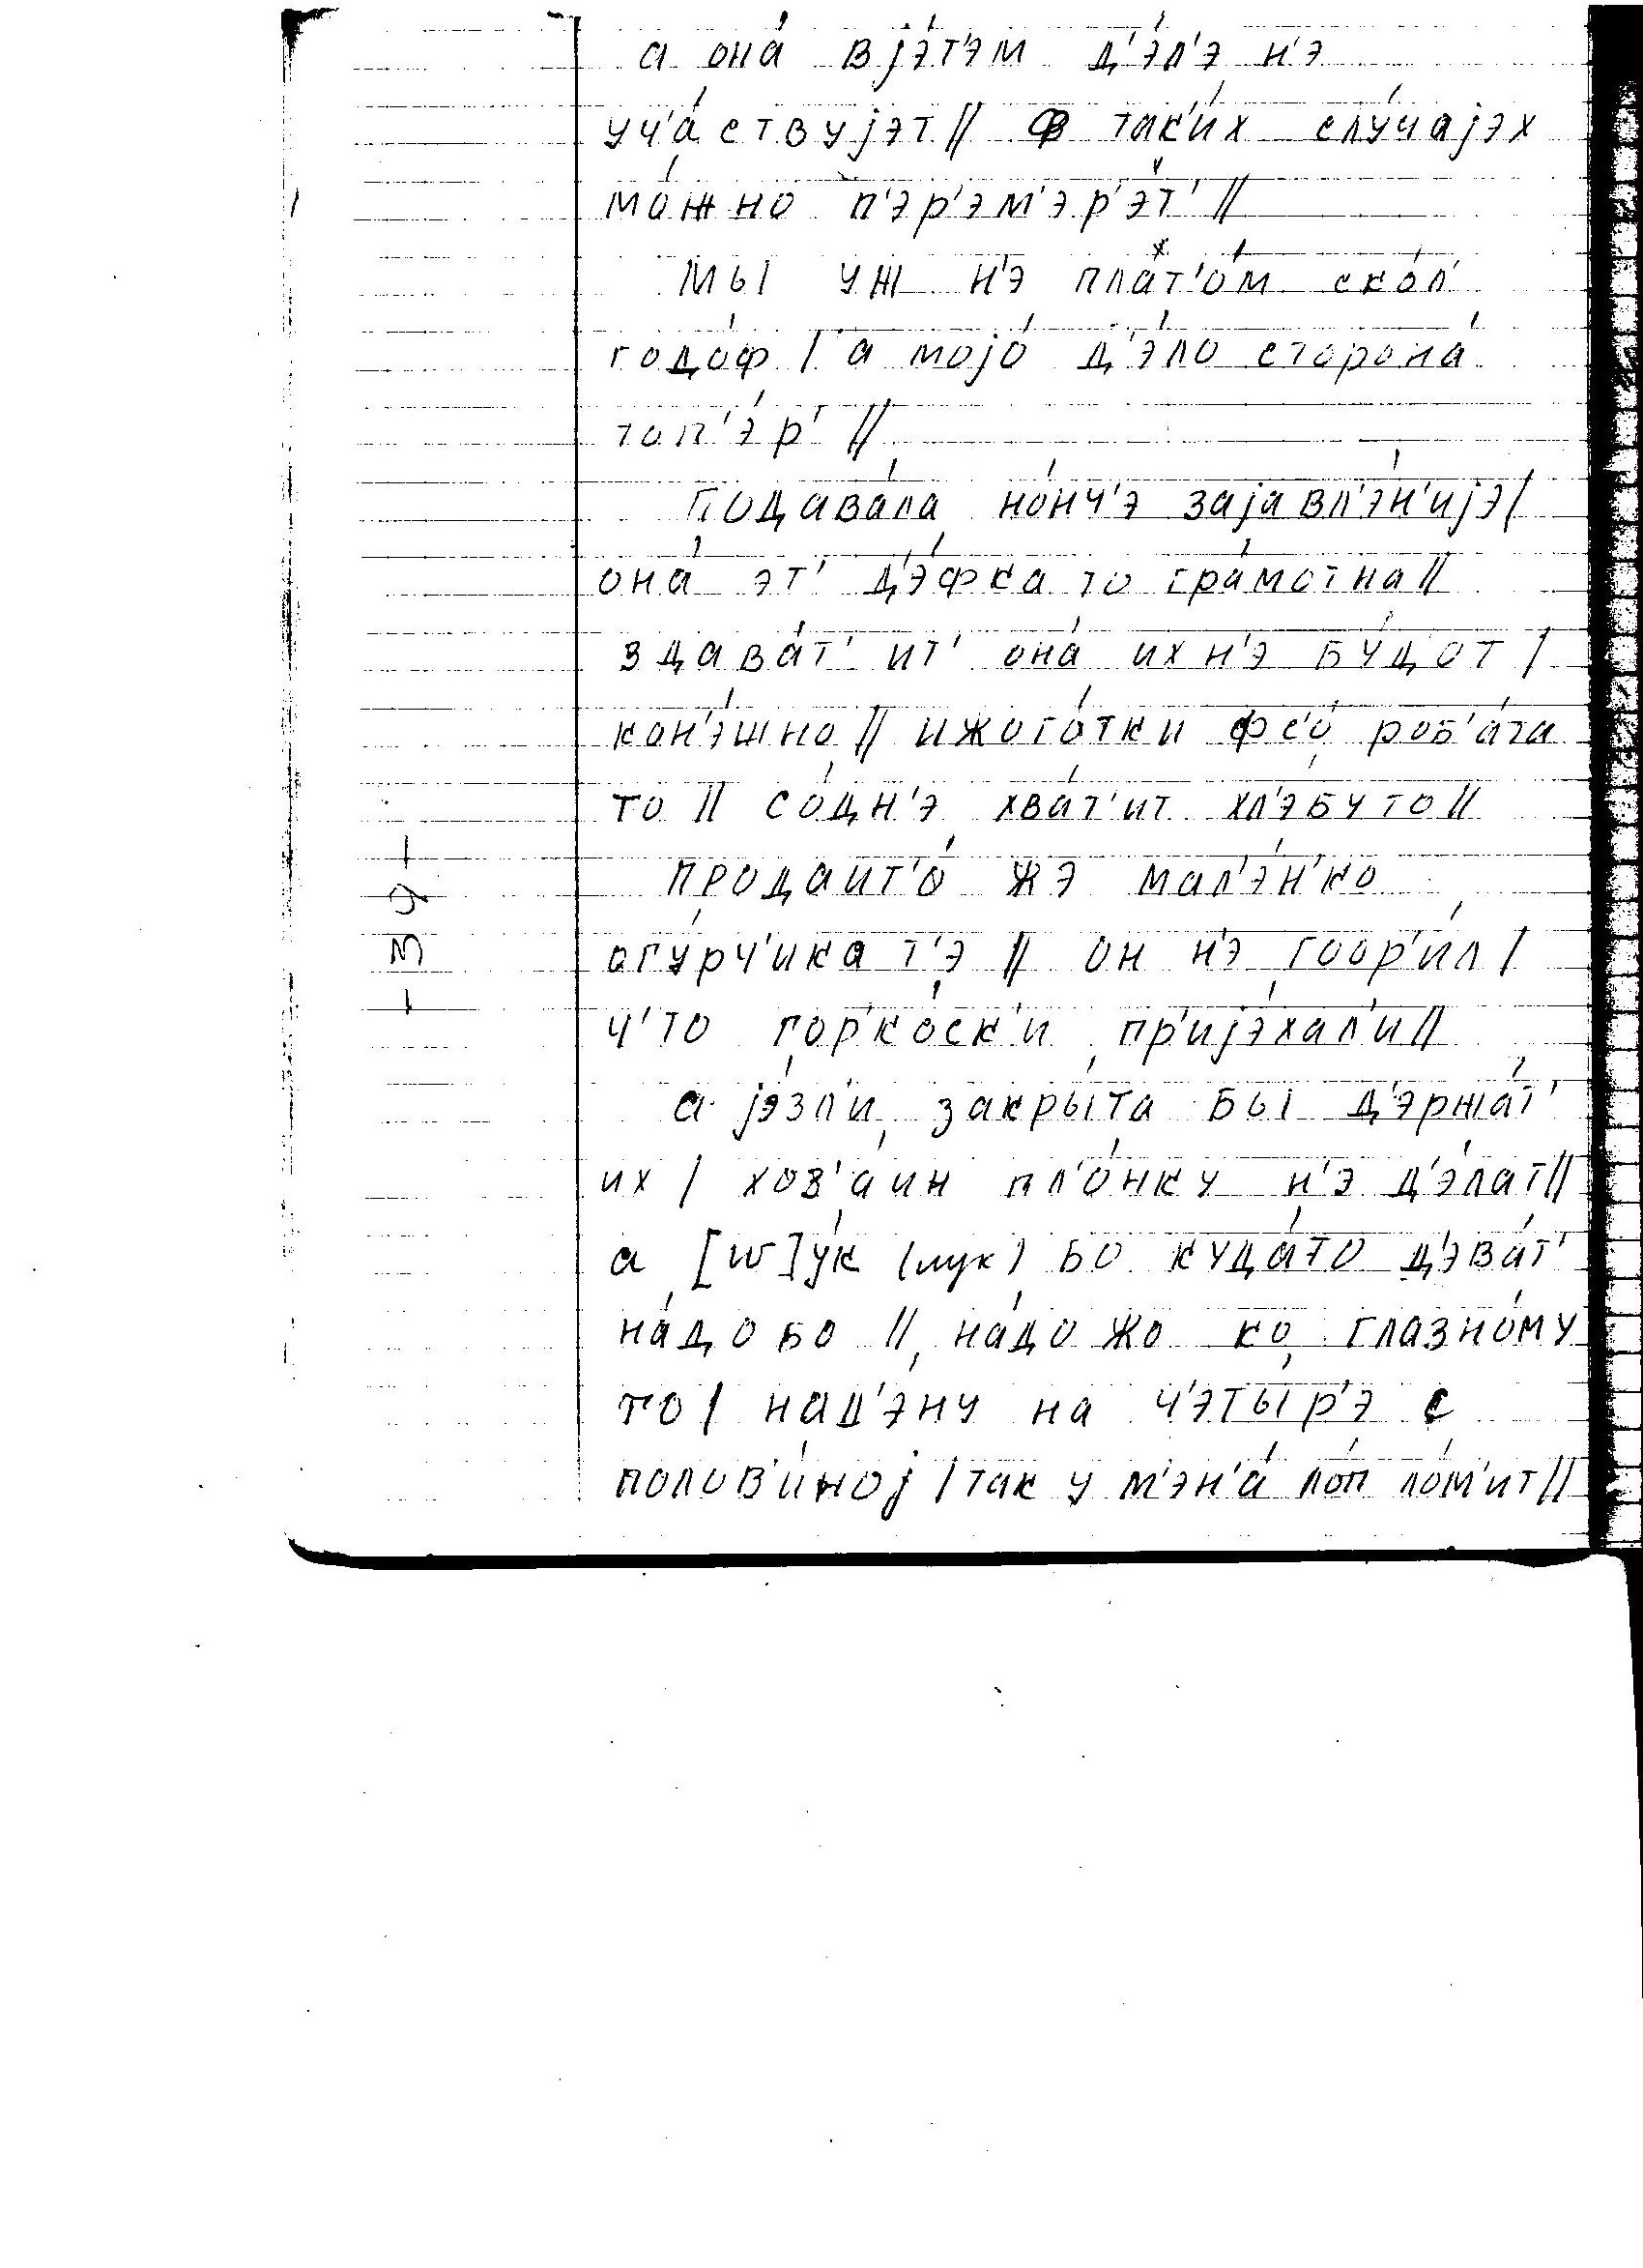 а она́ в јэ́т'эм д'э́л'э н'э
уч'а́ствујэт // ф так'и́х слу́чајэх
мо́жно п'эр'эм'эр'э́т' //
Мы уж н'э плат'о́м ско́л'
годо́ф / а мојо́ д'э́ло сторона́
топ'э́р' //
Подава́ла но́нч'э зајавл'э́н'ијэ /
она́ эт' д'э́фка то гра́мотна //
здава́т' ит' она́ их н'э бу́дот /
кон'э́шно // ижого́тки фс'о́ роб'а́та
то // со́дн'э хва́т'ит хл'э́бу то //
продаит'о́ жэ мал'э́н'ко
огу́рч'ика т'э // он н'э гоор'и́л /
ч'то гор'ко́ск'и пр'ијэ́хал'и //
а јэ́зл'и закры́та бы д'эржа́т'
их / хоз'а́ин пл'о́нку н'э д'э́лат //
а [w]у́к (лук) бо куда́то д'эва́т'
на́до бо // на́до жо ко глазно́му
то / над'э́ну на ч'эты́р'э с
полов'и́ној / так у м'эн'а́ лоп ло́м'ит //
- 39 -